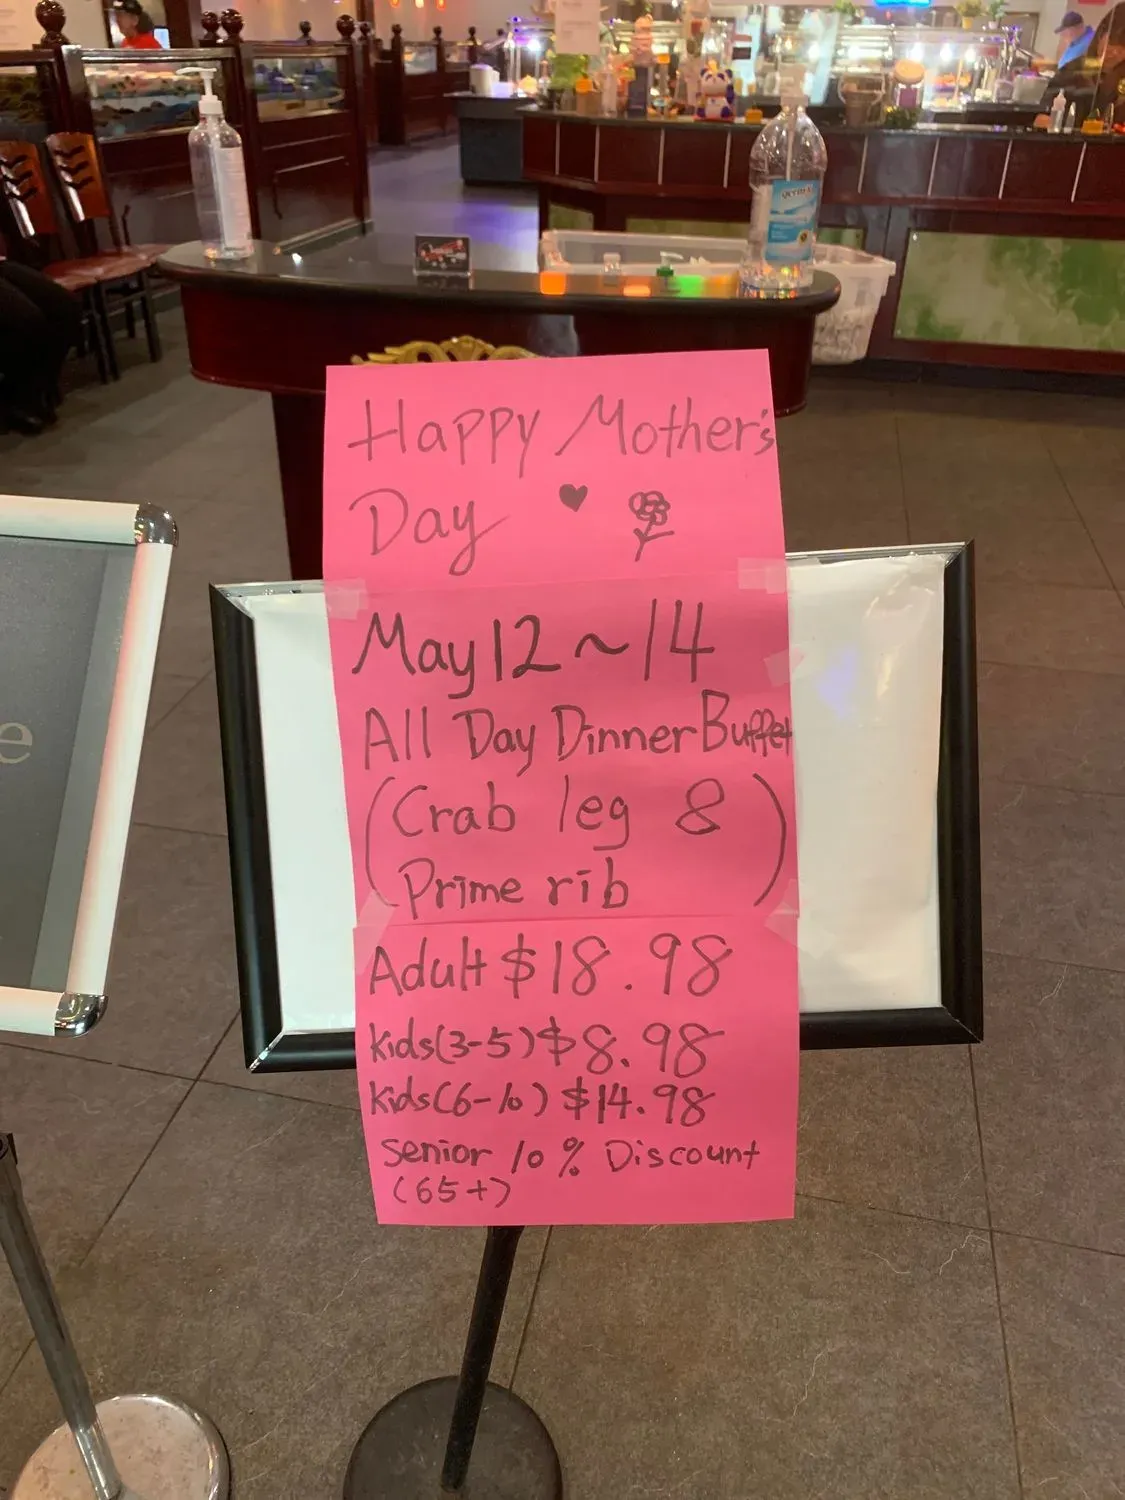 Happy Mother's
Day
May 12 ~ 14
All Day Dinner Buffet
(Crab leg &
Prime rib)
Adult $18.98
Kids(3-5) $8.98
Kids(6-10) $14.98
Senior 10% Discount
(65+)
e